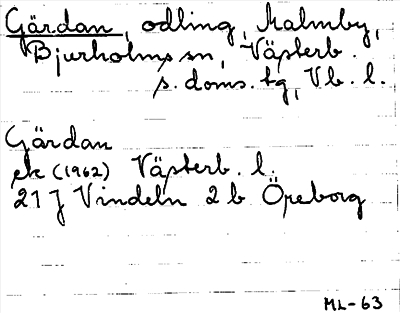 Gärdan, odling, Malmby,
Bjurholms sn, Västerb.
s. doms. tg, Vb. l.
Gärdan
ek (1962) Västerb. l.
21 J Vindeln 2 b Öreborg
ML-63